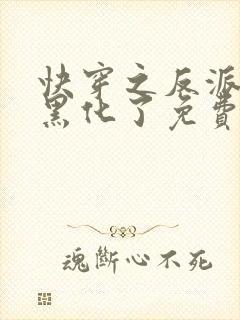 快穿之反派
黑化了免費
魂斷心不死